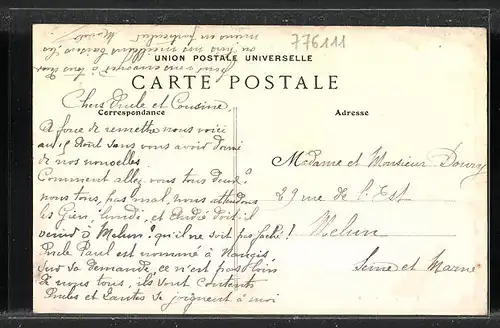 776111
UNION POSTALE UNIVERSELLE
CARTE POSTALE
Correspondance
Adresse
Chers Oncle et Cousine,
A force de remettre nous voici
au 19 Août sans vous avoir donné
de nos nouvelles.
Comment allez vous tous deux?
nous tous, pas mal, nous attendons
les Gien, lundi, et André doit-il
venir à Melun? qu'il ne soit pas fâché!
Oncle Paul est nommé à Nangis
sur sa demande, ce n'est pas loin
de nous tous, ils sont contents
Oncles et Tantes se joignent à moi
pour vous envoyer à tous
ou trois nos meilleurs baisers les
miens en particulier
Madame et Monsieur
29 rue de l'Est
Melun
Seine et Marne